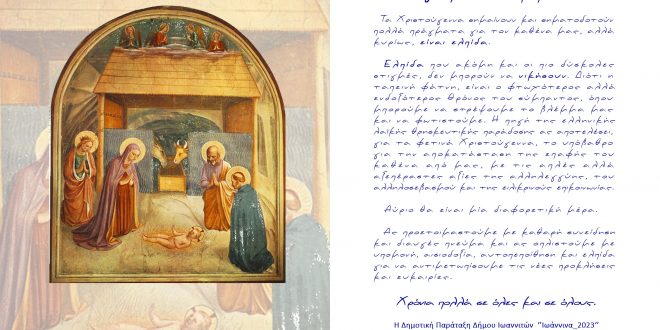 Τα Χριστούγεννα σημαίνουν και σηματοδοτούν
πολλά πράγματα για τον καθένα μας, αλλά
κυρίως, είναι ελπίδα.
Ελπίδα που ακόμη και οι πιο δύσκολες
στιγμές, δεν μπορούν να νικήσουν. Διότι η
ταπεινή φάτνη, είναι ο φτωχότερος αλλά
ενδοξότερος θρόνος του σύμπαντος, όπου
μπορούμε να στρέψουμε το βλέμμα μας
και να φωτιστούμε. Η πηγή της ελληνικής
λαϊκής θρησκευτικής παράδοσης ας αποτελέσει,
για τα φετινά Χριστούγεννα, το υπόβαθρο
για την αποκατάσταση της επαφής του
καθένα από μας, με τις απλές αλλά
αξεπέραστες αξίες της αλληλεγγύης, του
αλληλοσεβασμού και της ειλικρινούς επικοινωνίας.
Αύριο θα είναι μία διαφορετική μέρα.
Ας προετοιμαστούμε με καθαρή συνείδηση
και διαυγές πνεύμα και ας οπλιστούμε με
υπομονή, αισιοδοξία, αυτοπεποίθηση και ελπίδα
για να αντιμετωπίσουμε τις νέες προκλήσεις
και ευκαιρίες.
Χρόνια πολλά σε όλες και σε όλους.
Η Δημοτική Παράταξη Δήμου Ιωαννιτών "Ιωάννινα_2023"